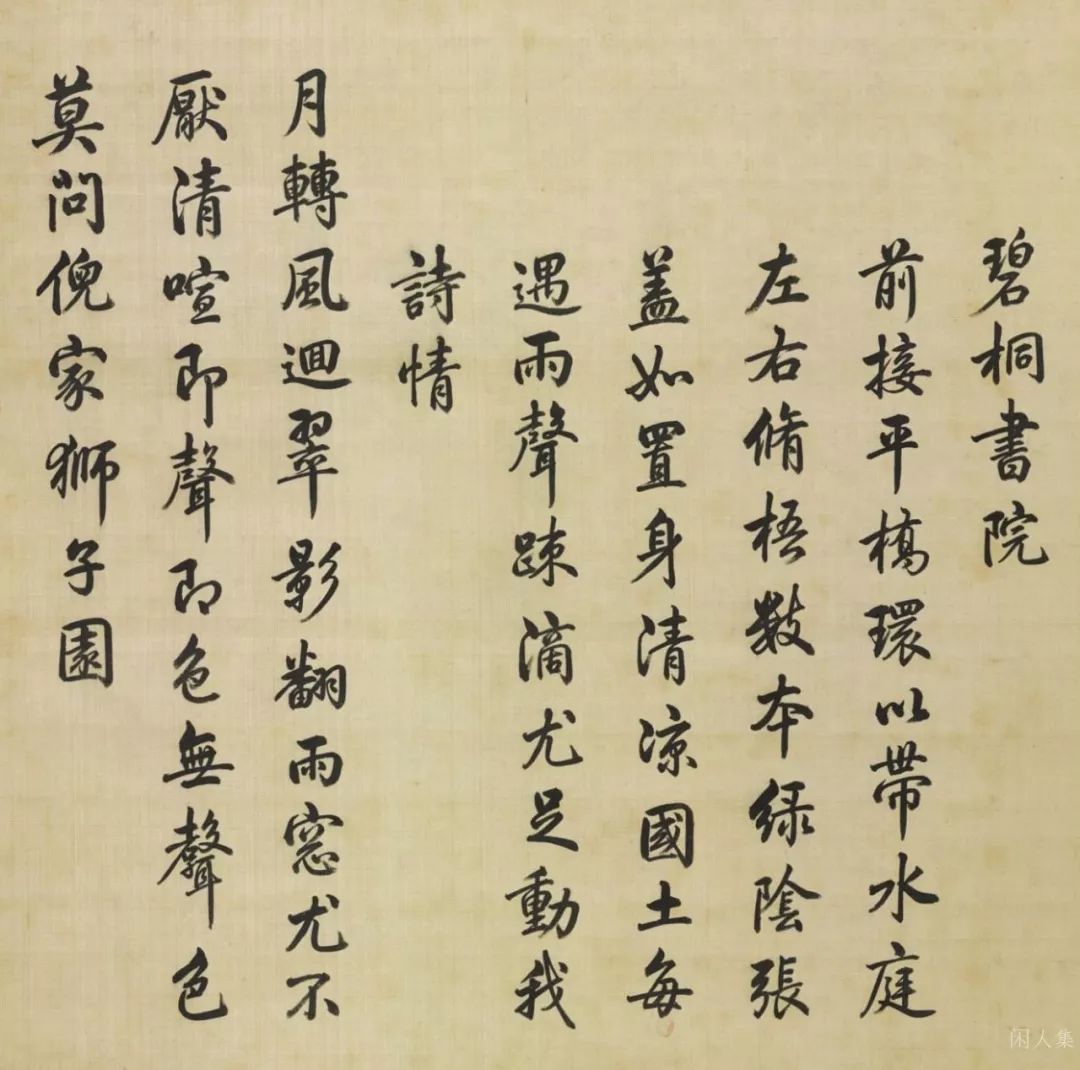 碧桐書院
前接平橋環以帶水庭
左右脩梧數本綠陰張
蓋如置身清涼國土每
遇雨聲疎滴尤足動我
詩情
月轉風迴翠影翻雨窓尤不
厭清喧即聲即色無聲色
莫問倪家獅子園
闲人集